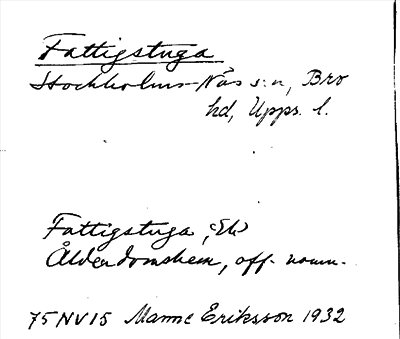 Fattigstuga
Stockholms-Näs s:n, Bro
hd, Upps. l.
Fattigstuga, Ek
Ålderdomshem, off. namn.
75NV15 Manne Eriksson 1932